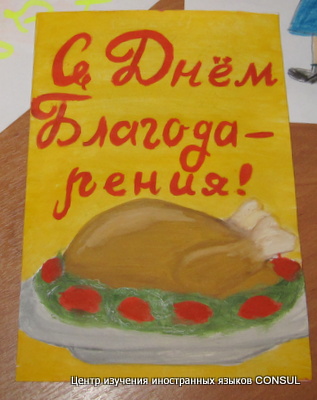 С Днём
Благода-
рения!
Центр изучения иностранных языков CONSUL